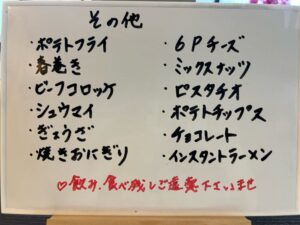 その他
・ポテトフライ
・春巻き
・ビーフコロッケ
・シュウマイ
・ぎょうざ
・焼きおにぎり
・6Pチーズ
・ミックスナッツ
・ピスタチオ
・ポテトチップス
・チョコレート
・インスタントラーメン
♡飲み、食べ残しご遠慮下さいませ